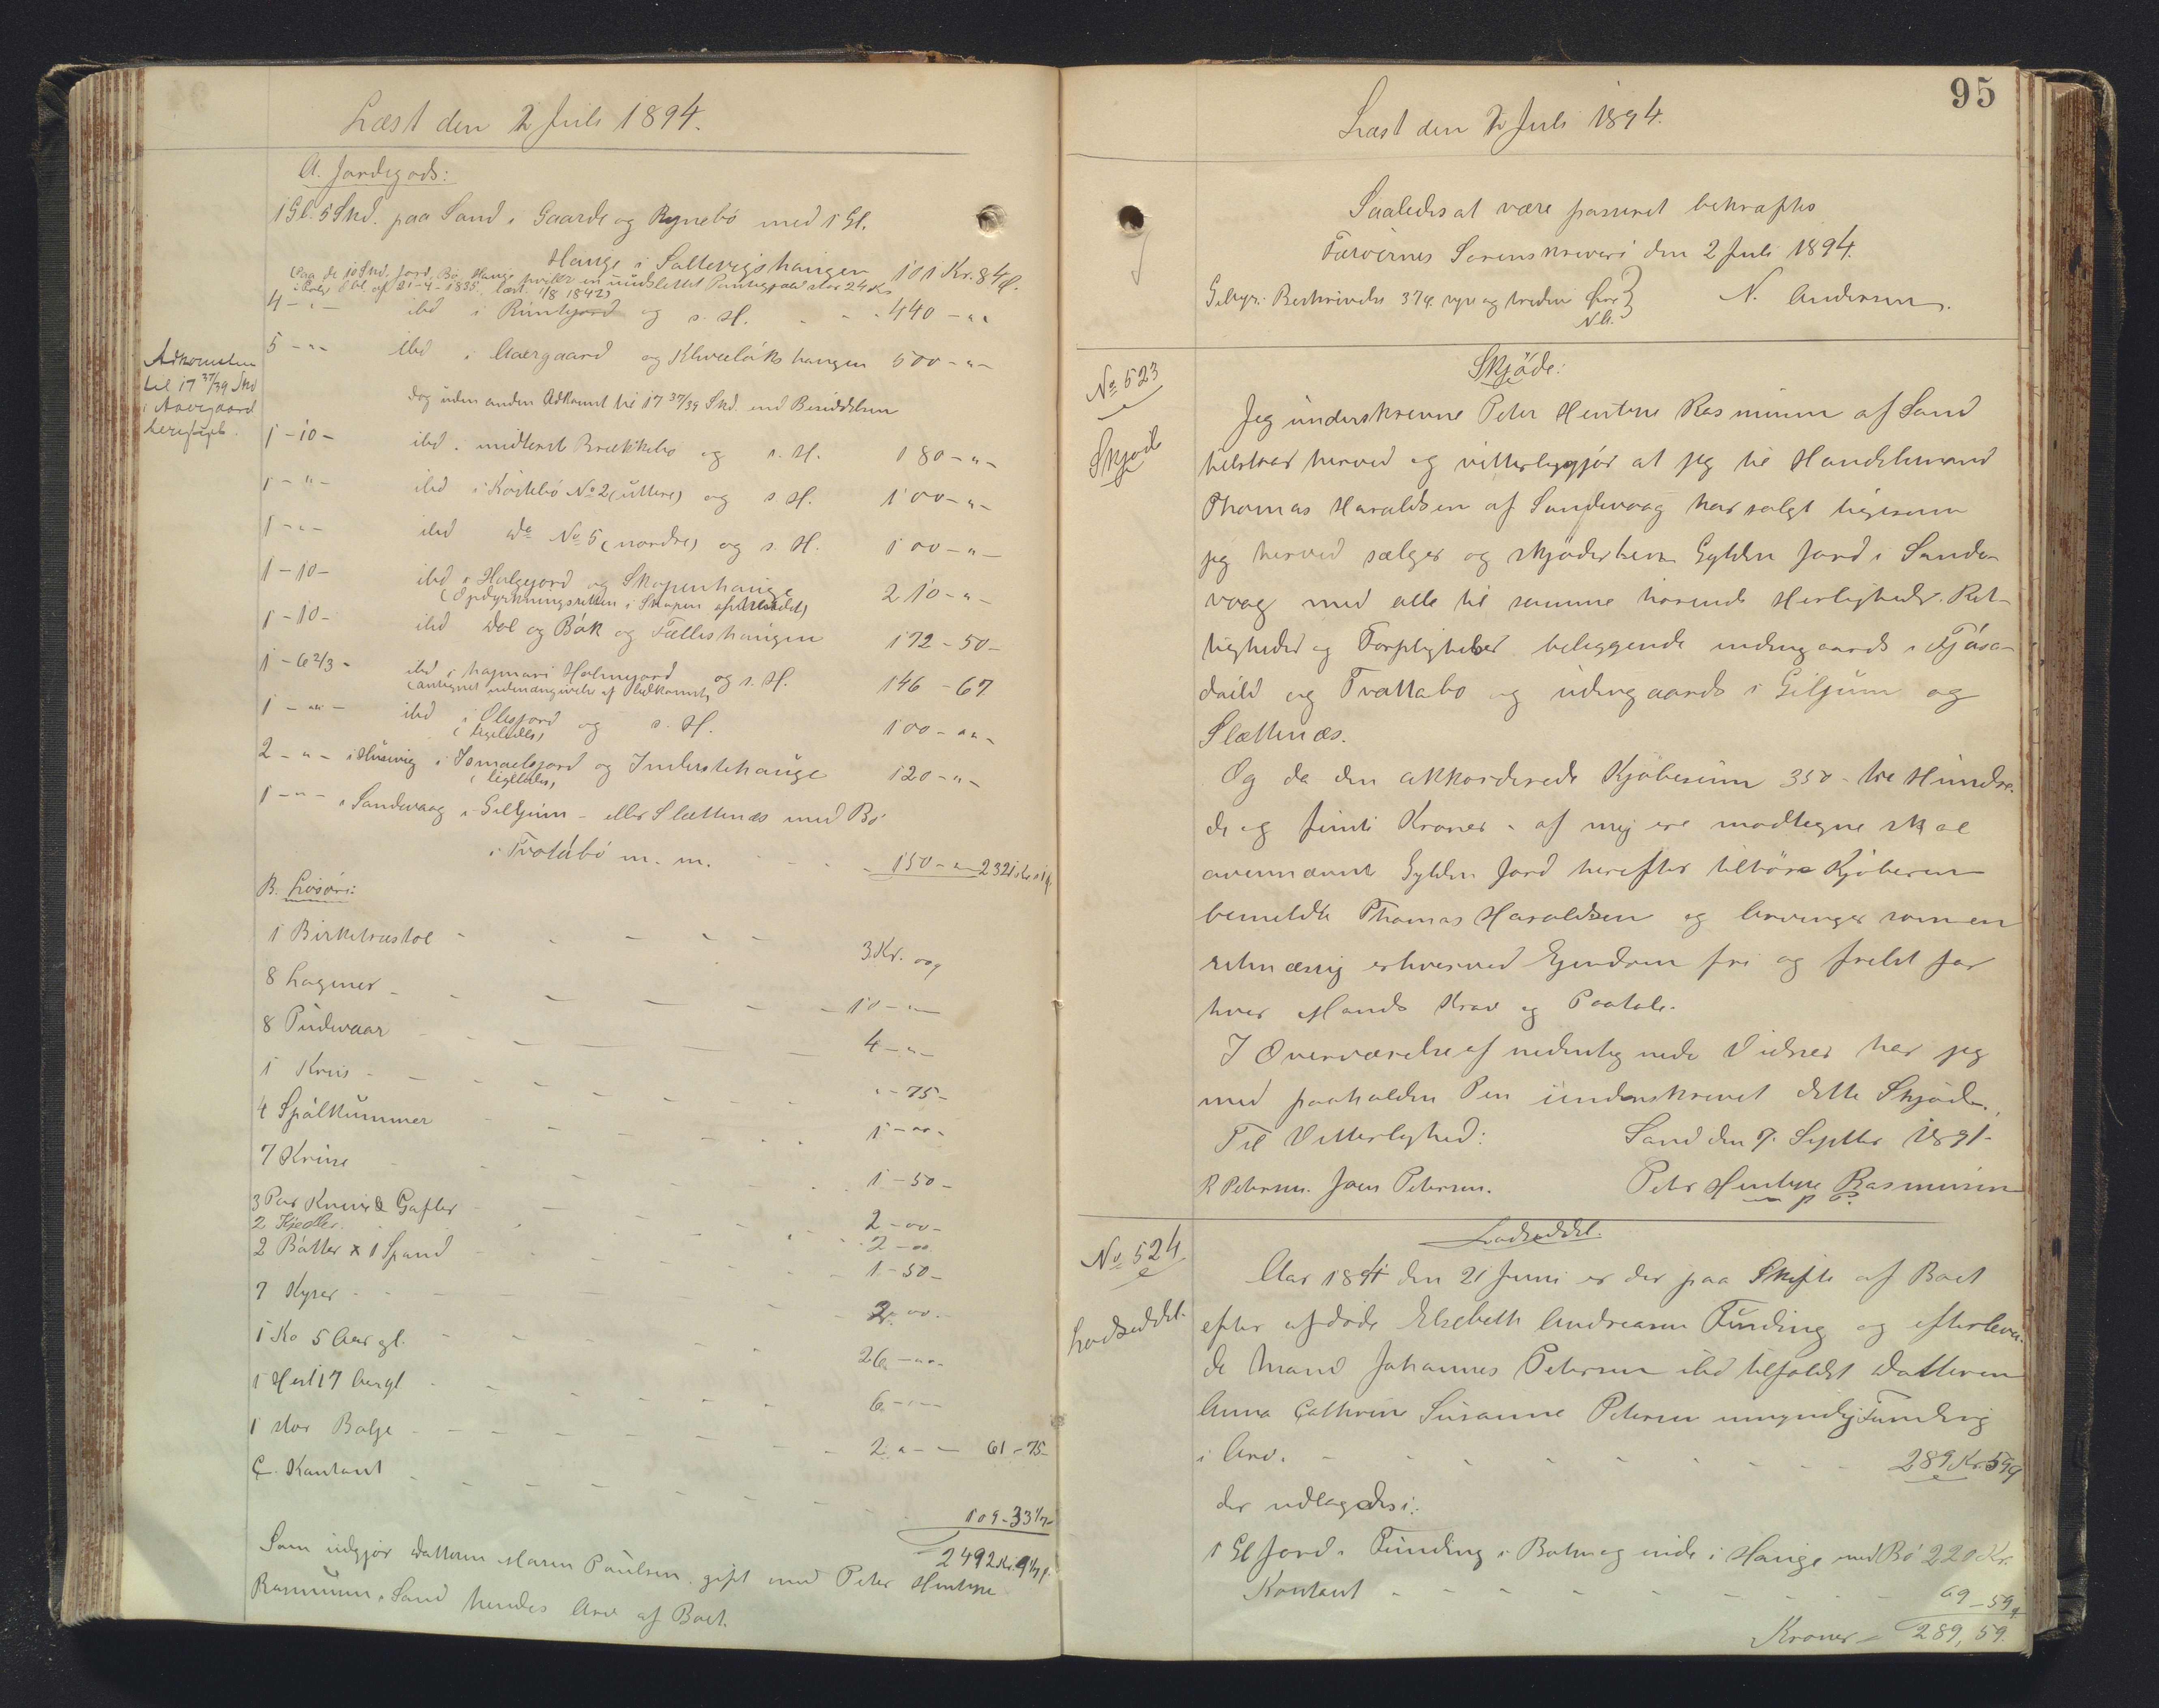 Læst den 2 Juli 1894.
A. Jordegods:
1 Gl. 5 Skd. paa Sand i Gaarde og Rynebö med 1 Gl.
Hauge i Saltevigshaugen 101 Kr. 84 q.
(Paa de 10 Skd. Jord, Bö, Hauge hviler en uudslettet Pantegjæld stor 24 Kr
ifølge Obl. af 21-4-1835, læst 1/8 1842)
4 - " - ibd i og s. H. 440 - " "
5 - " - ibd i Aaergaard og haugen 500 - " -
dog uden anden Adkomst til 17 37/39 Skd. end Besiddelsen
Adkomsten
til 17 37/39 Skd
i Aaergaard
1 - 10 - ibd. i midterst Brekkebo og s. H. 180 - " -
1 - " - ibd i Kostebö No 2 (uttere) og s. H. 100 - " -
1 - " - ibd do No 5 (nordre) og s. H. 100 - " -
1 - 10 - ibd i Holgejord og Skopenhauge 210 - " -
(Opdyrkningsretten i Skopen )
1 - 10 - ibd Dol og Bák og Fælleshaugen 172 - 50 -
1 - 6 2/3 - ibd i Holmejord og s. H. 146 - 67
( uden angivelse af Adkomst)
1 - " - ibd i Olesjord og s. H. 100 - " -
(ligeledes)
2 - " - i Husevig i Jsmaelsjord og Inderstehauge 120 - " -
(ligeledes)
1 - " - i Sandevaag i Giljum - eller Slættenæs med Bö
i Trotabö m. m. 150 - " -
B. Lösöre:
1 Birketræstol 3 Kr. 00 q
8 Lagener 10 - " -
8 Pudevaar 4 - " -
1 Kruus " - 75 -
4 Spölkummer 1 - " -
7 Kruse 1 - 50 -
3 Par Knive & Gafler 2 - 00 -
2 Kjedler 2 - 00
2 Bötter x 1 Spand 1 - 50 -
7 Kyper 2 - 00 -
1 Ko 5 Aar gl. 26 - " -
1 Hest 17 Aar gl 6 - " -
1 stor Balje 2 " - - 61 - 75 -
C. Kontant
109 - 33 1/7 -
2492 Kr. 9 1/7 q.
Som udgjør Datteren Maren Paulsen, gift med Peter Hentze
Rasmussen, Sand hendes Arv af Boet.
95
Læst den 2 Juli 1894.
Saaledes at være passeret bekræftes
Færøernes Sorenskriveri den 2 Juli 1894.
Gebyr: Beskrivelse 37 q. syv og tredive Øre
N. A.
N. Andersen.
No 523
Skjöde
Skjöde:
Jeg underskrevne Peter Hentze Rasmussen af Sand
tilstaar herved og vitterliggjör at jeg til Handelsmand
Thomas Haraldsen af Sandevaag har solgt ligesom
jeg herved sælger og skjöder hem Gylden Jord i Sande-
vaag med alle til samme hörende Herligheder, Ret-
tigheder og Forpligtelser beliggende indengaards i Tjåsa-
daild og Trottabo og udengaards i Giljum og
Slættenæs.
Og da den akkorderede Kjöbesum 350 - tre Hundre-
de og femti Kroner - af mig ere modtagne skal
ovennævnte Gylden Jord herefter tilhöre Kjöberen
bemeldte Thomas Haraldsen og Arvinger som en
retmæssig erhvervet Ejendom fri og frelst for
hver Mands Krav og Paatale.
I Overværelse af nedentegnede Vidner har jeg
med paaholden Pen underskrevet dette Skjöde.
Til Vitterlighed: Sand den 7. Septbr 1891.
R Petersen. Joen Petersen. Peter Hentze Rasmussen
m. p. P.
No 524
Lodseddel.
Lodseddel.
Aar 1894 den 21 Juni er der paa Skifte af Boet
efter afdöde Elsebeth Andreasen Funding og efterleven-
de Mand Johannes Petersen ibd tilfaldet Datteren
Anna Cathrine Susanne Petersen umyndig Funding
i Arv. 289 Kr. 59 q
der udlagdes i:
1 Gl Jord i Funding i Botn og inde i Hauge med Bö 220 Kr.
Kontant 69 - 59 q.
Kroner - 289, 59.